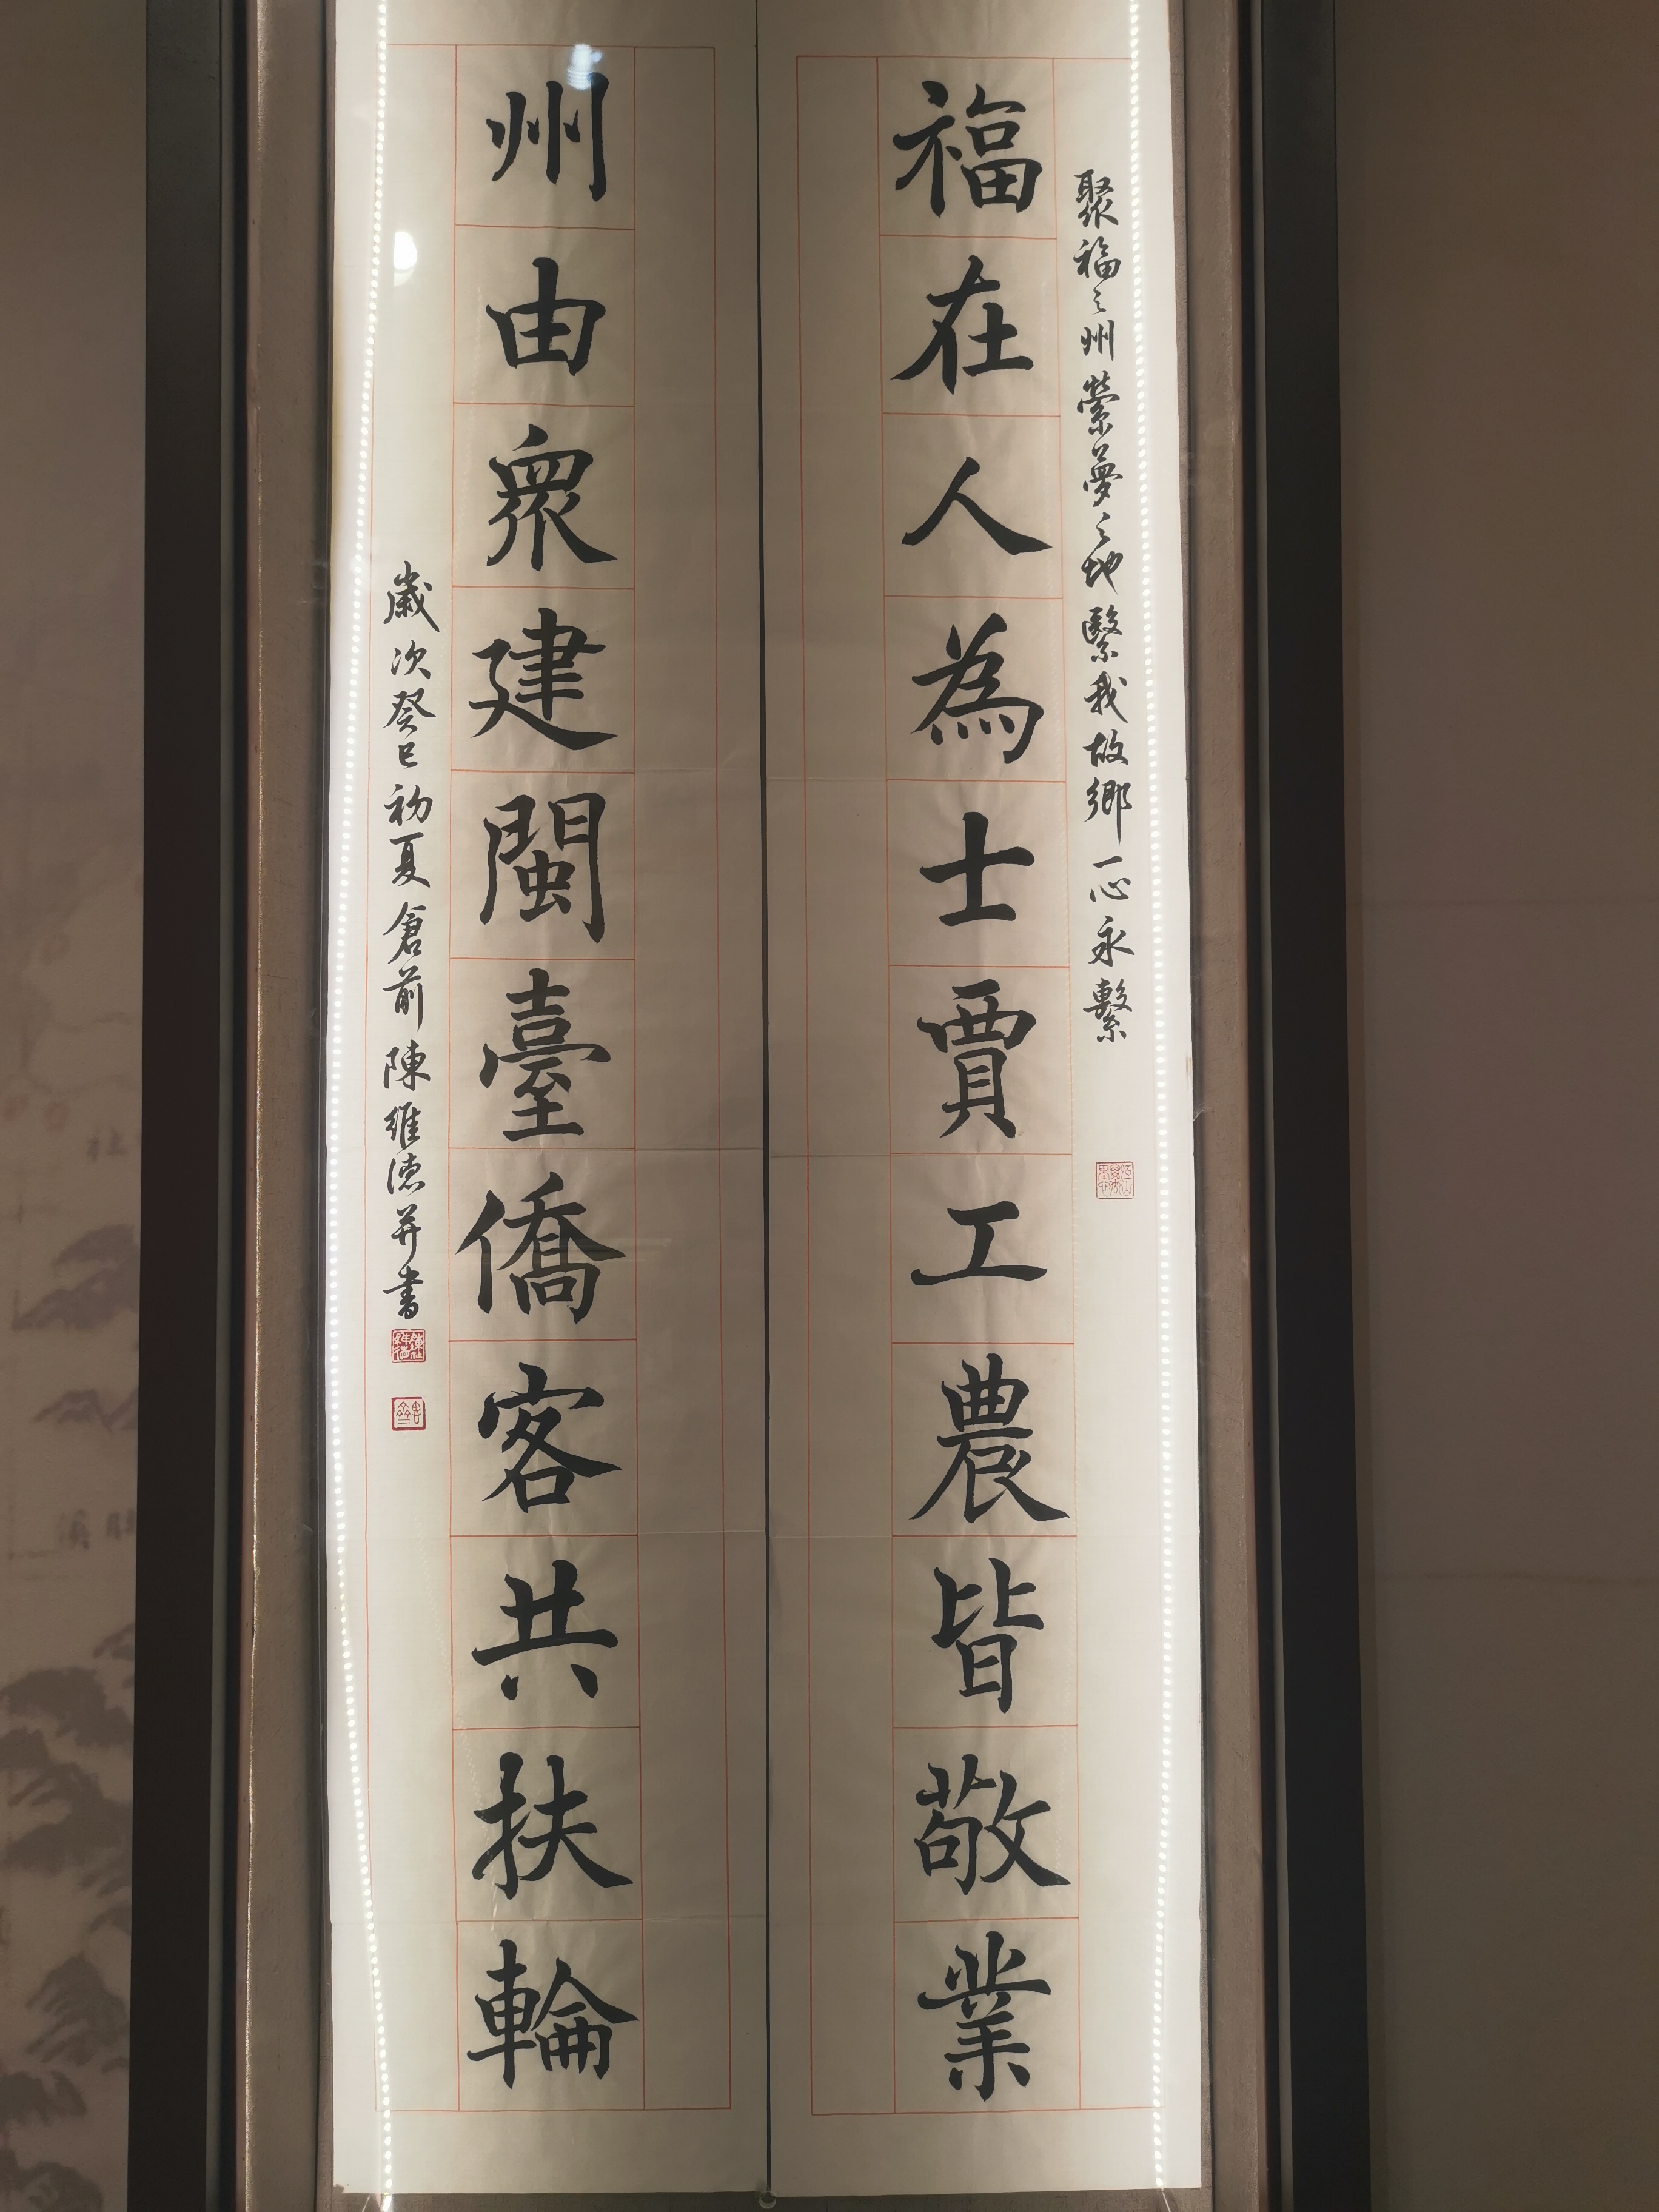 聚福之州縈夢之地繄我故鄉一心永繫
福在人為士賈工農皆敬業
州由衆建閩臺僑客共扶輪
歲次癸巳初夏倉前陳維德并書